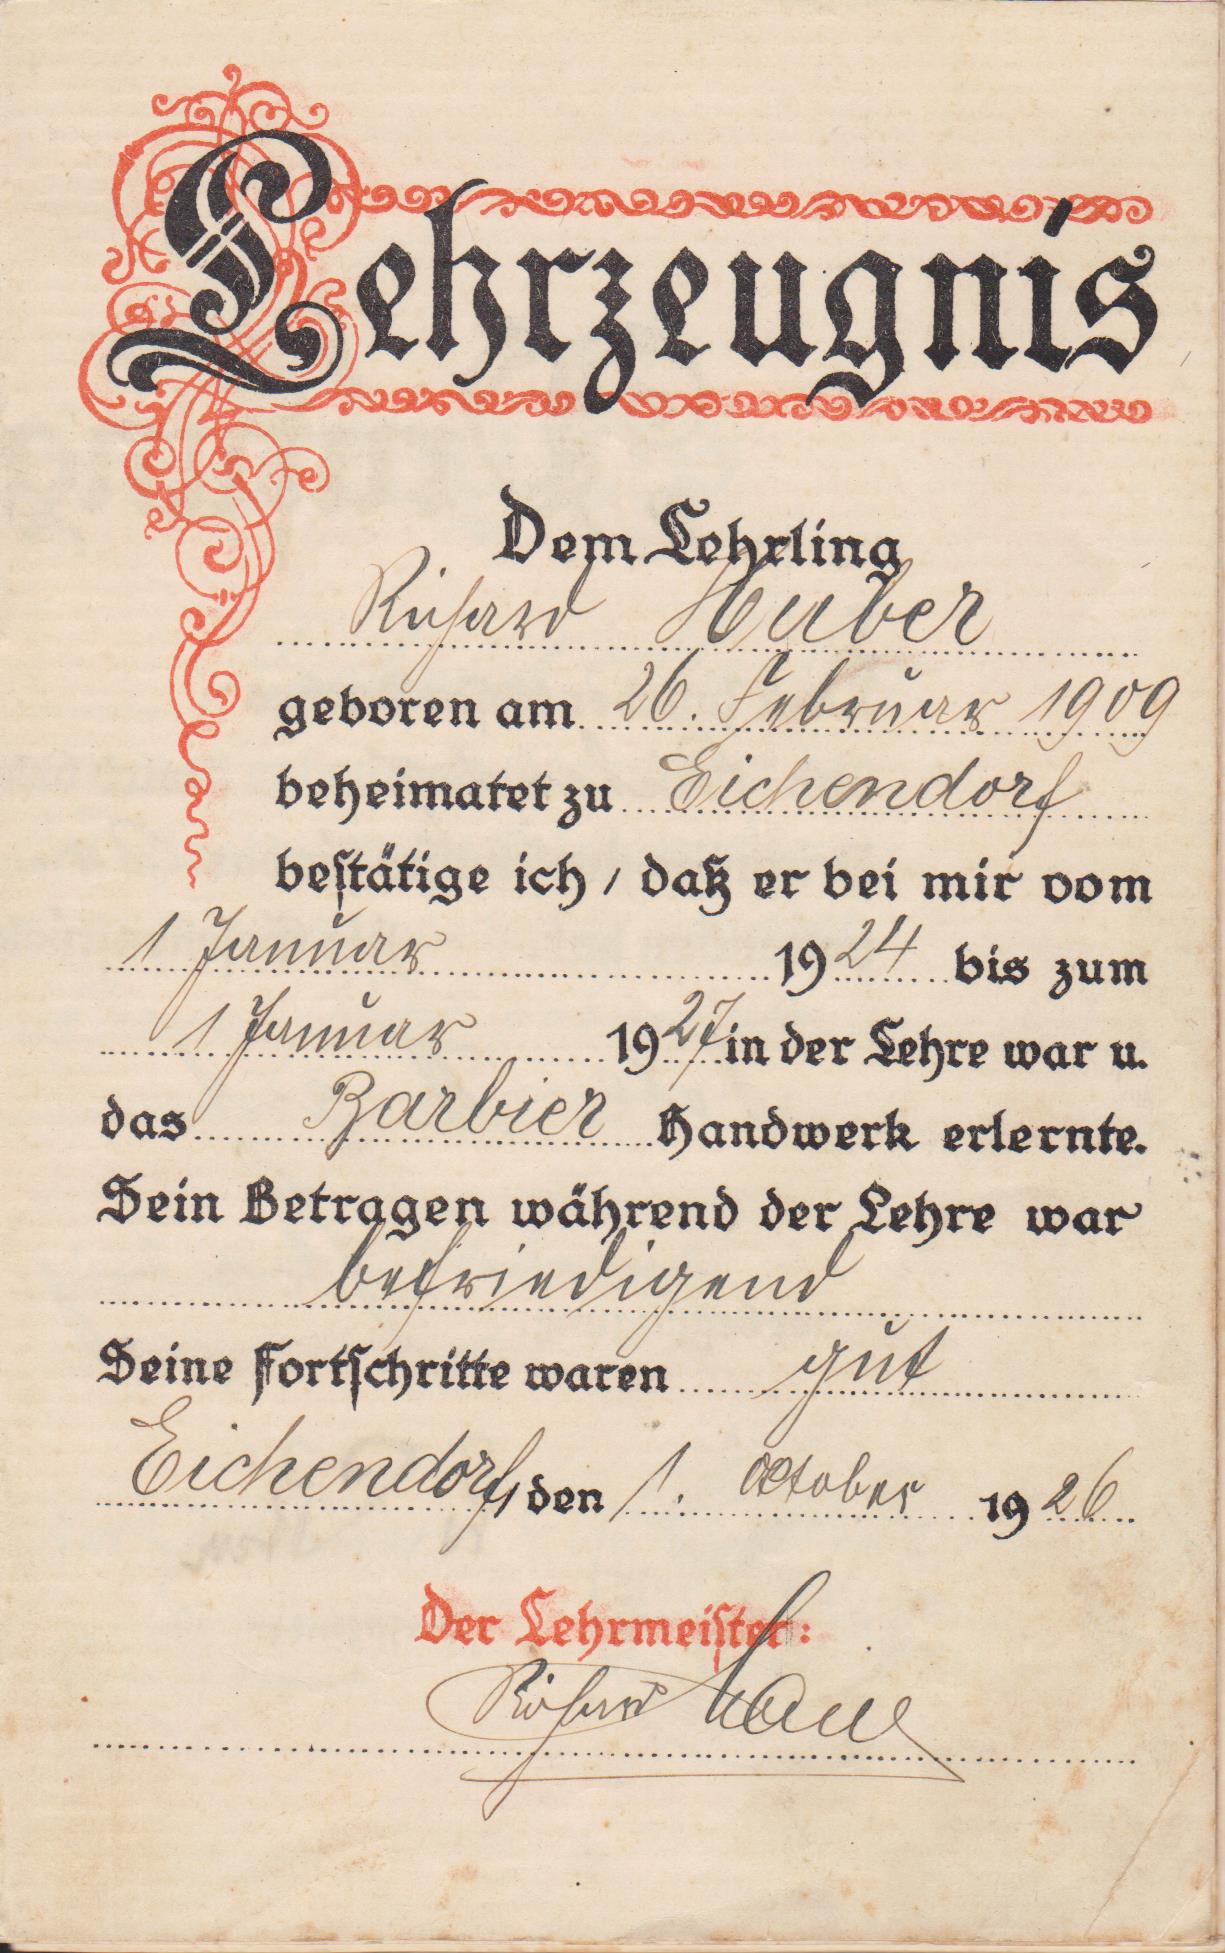 Lehrzeugnis
Dem Lehrling
Richard Huber
geboren am 26. Februar 1909
beheimatet zu Eichendorf
bestätige ich, daß er bei mir vom
1 Januar 1924 bis zum
1 Januar 1927 in der Lehre war u.
das Barbier Handwerk erlernte.
Sein Betragen während der Lehre war
befriedigend
Seine Fortschritte waren gut
Eichendorf, den 1. Oktober 1926
Der Lehrmeister:
Richard